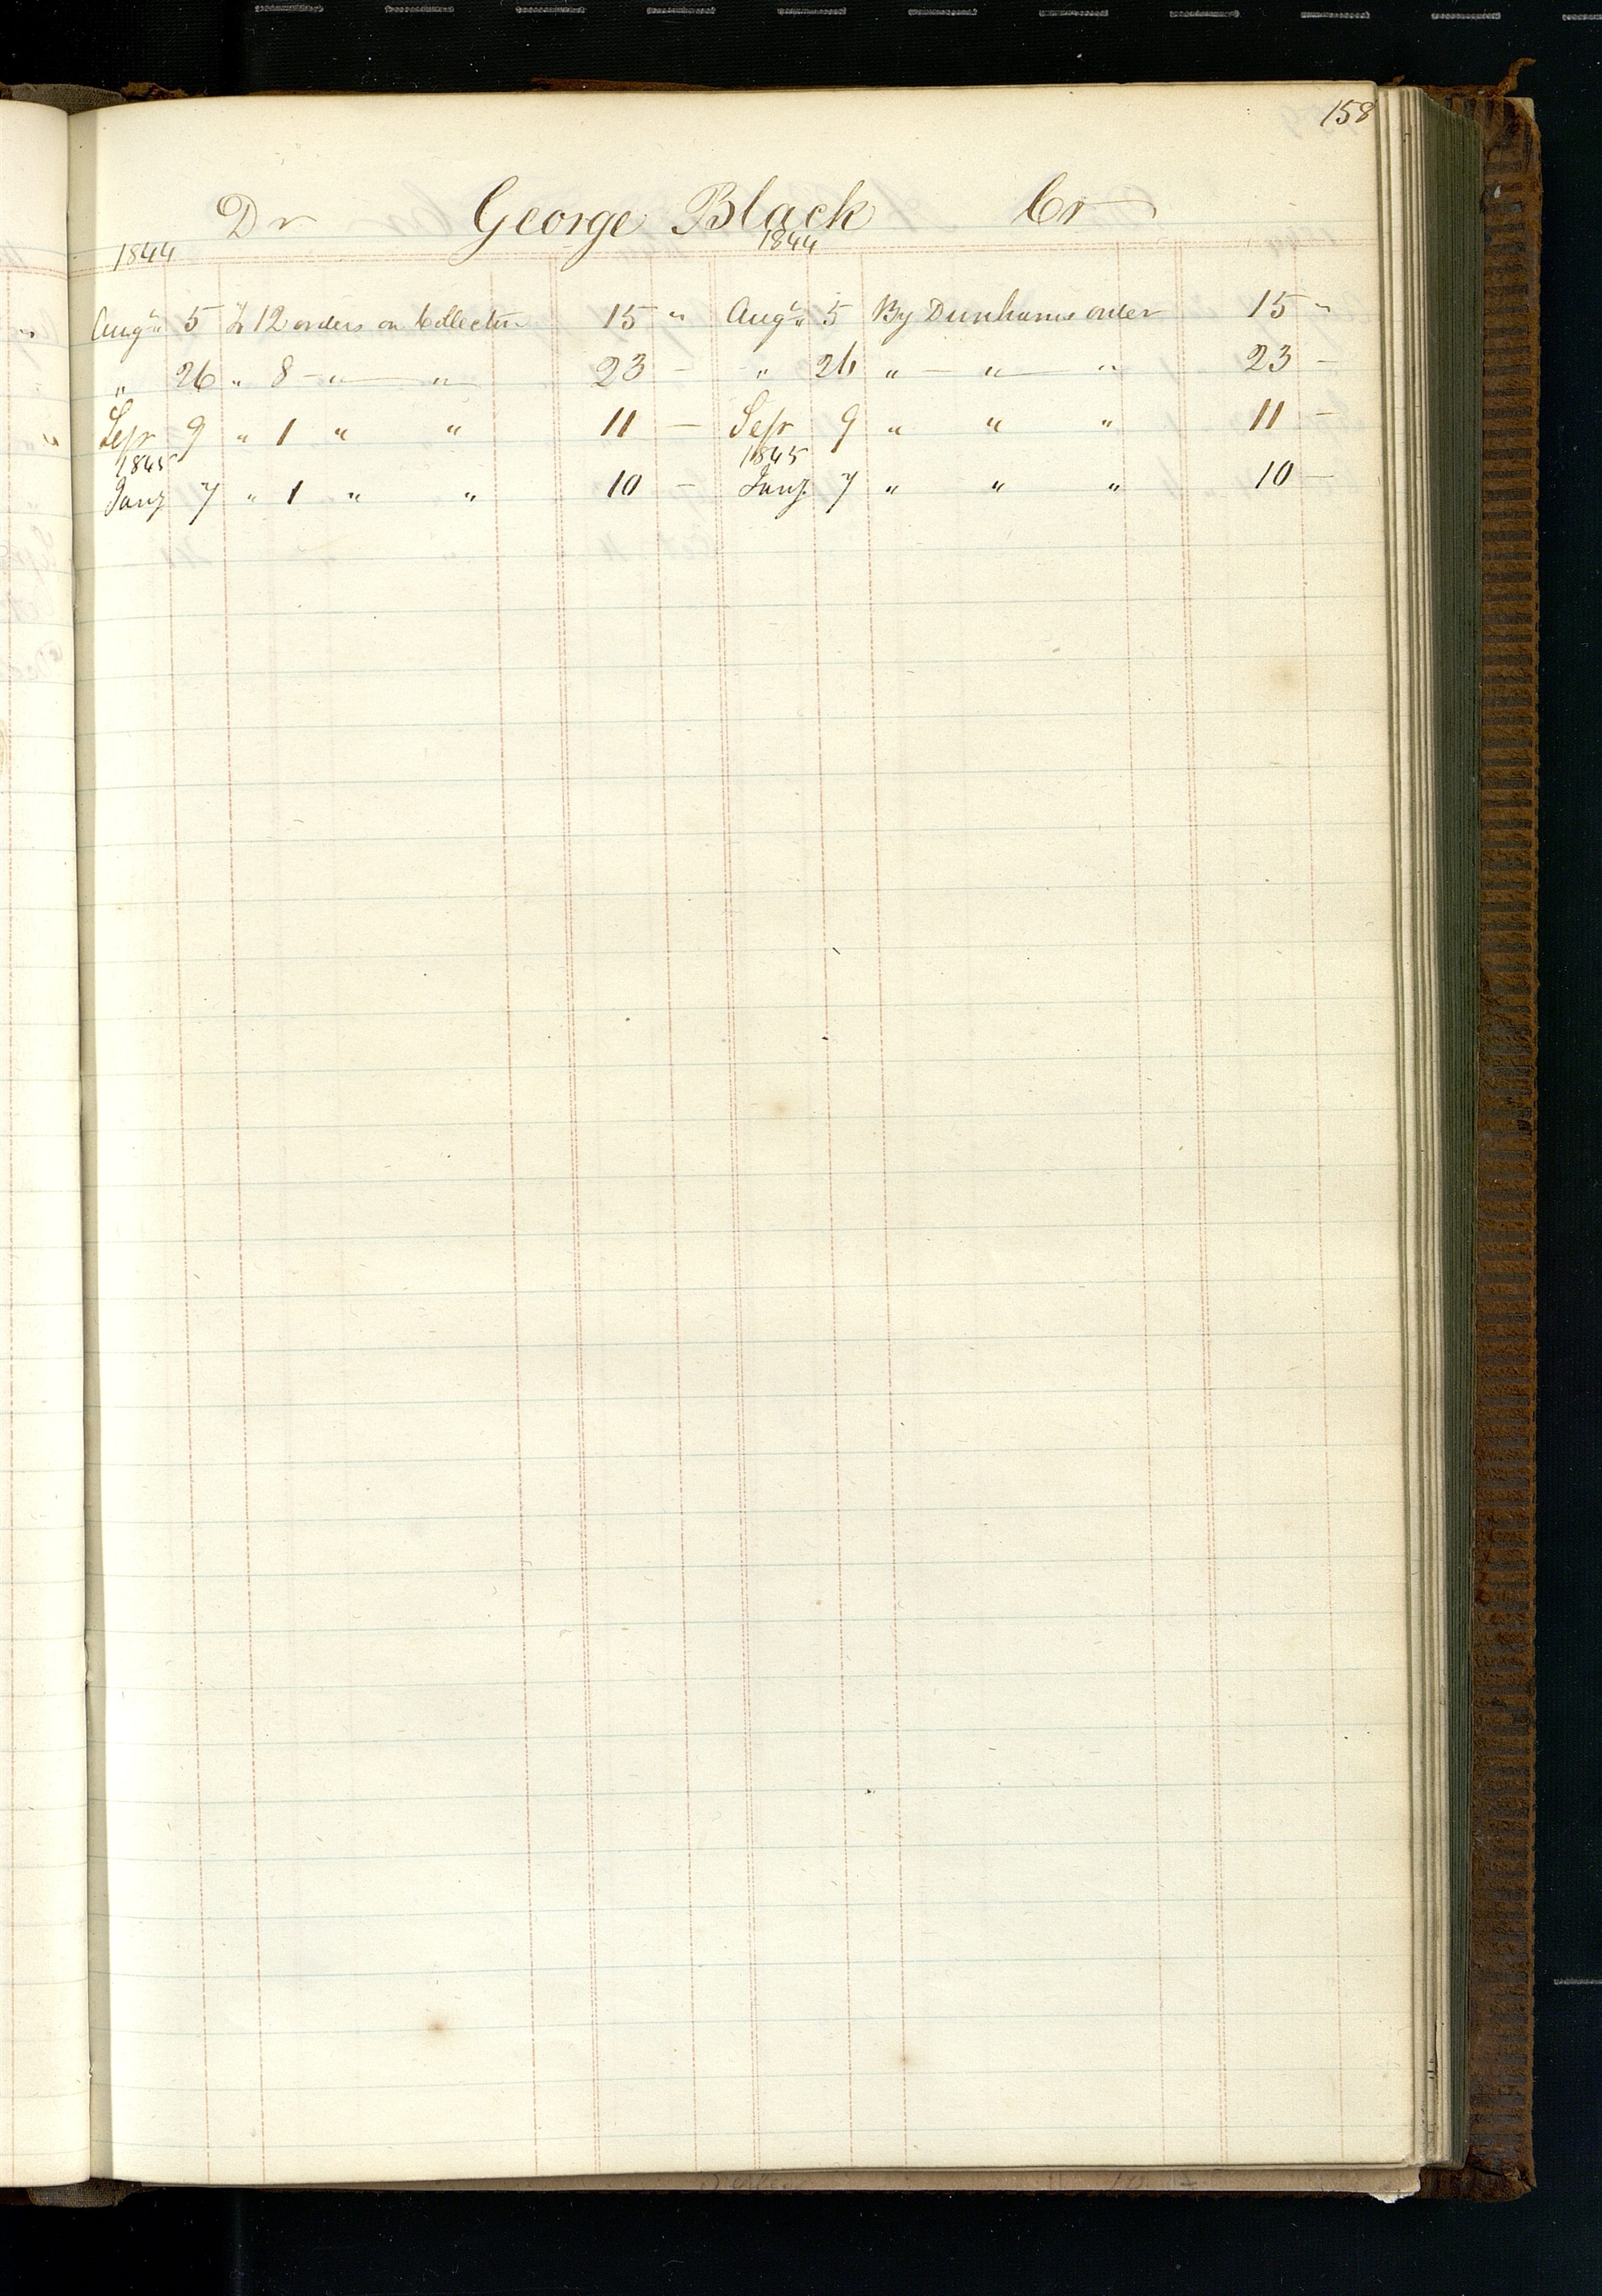 158
Dr George Black Cr
1844 1844
Augt 5 To 12 orders on Collector 15 " Augt 5 By Dunhams order 15 "
" 26 " 8 " " 23 - " 26 " " " 23 -
Sepr 9 " 1 " " 11 - Sepr 9 " " " 11 -
1845 1845
Jany 7 " 1 " " 10 - Jany 7 " " " 10 -